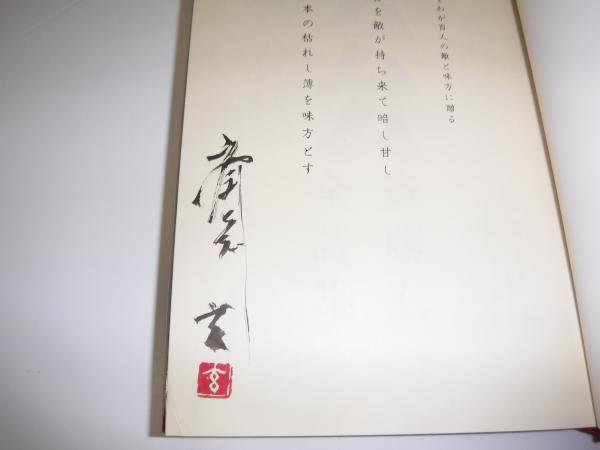 わが百人の敵と味方に贈る
を敵が持ち来て暗し甘し
本の枯れし薄を味方とす
玄